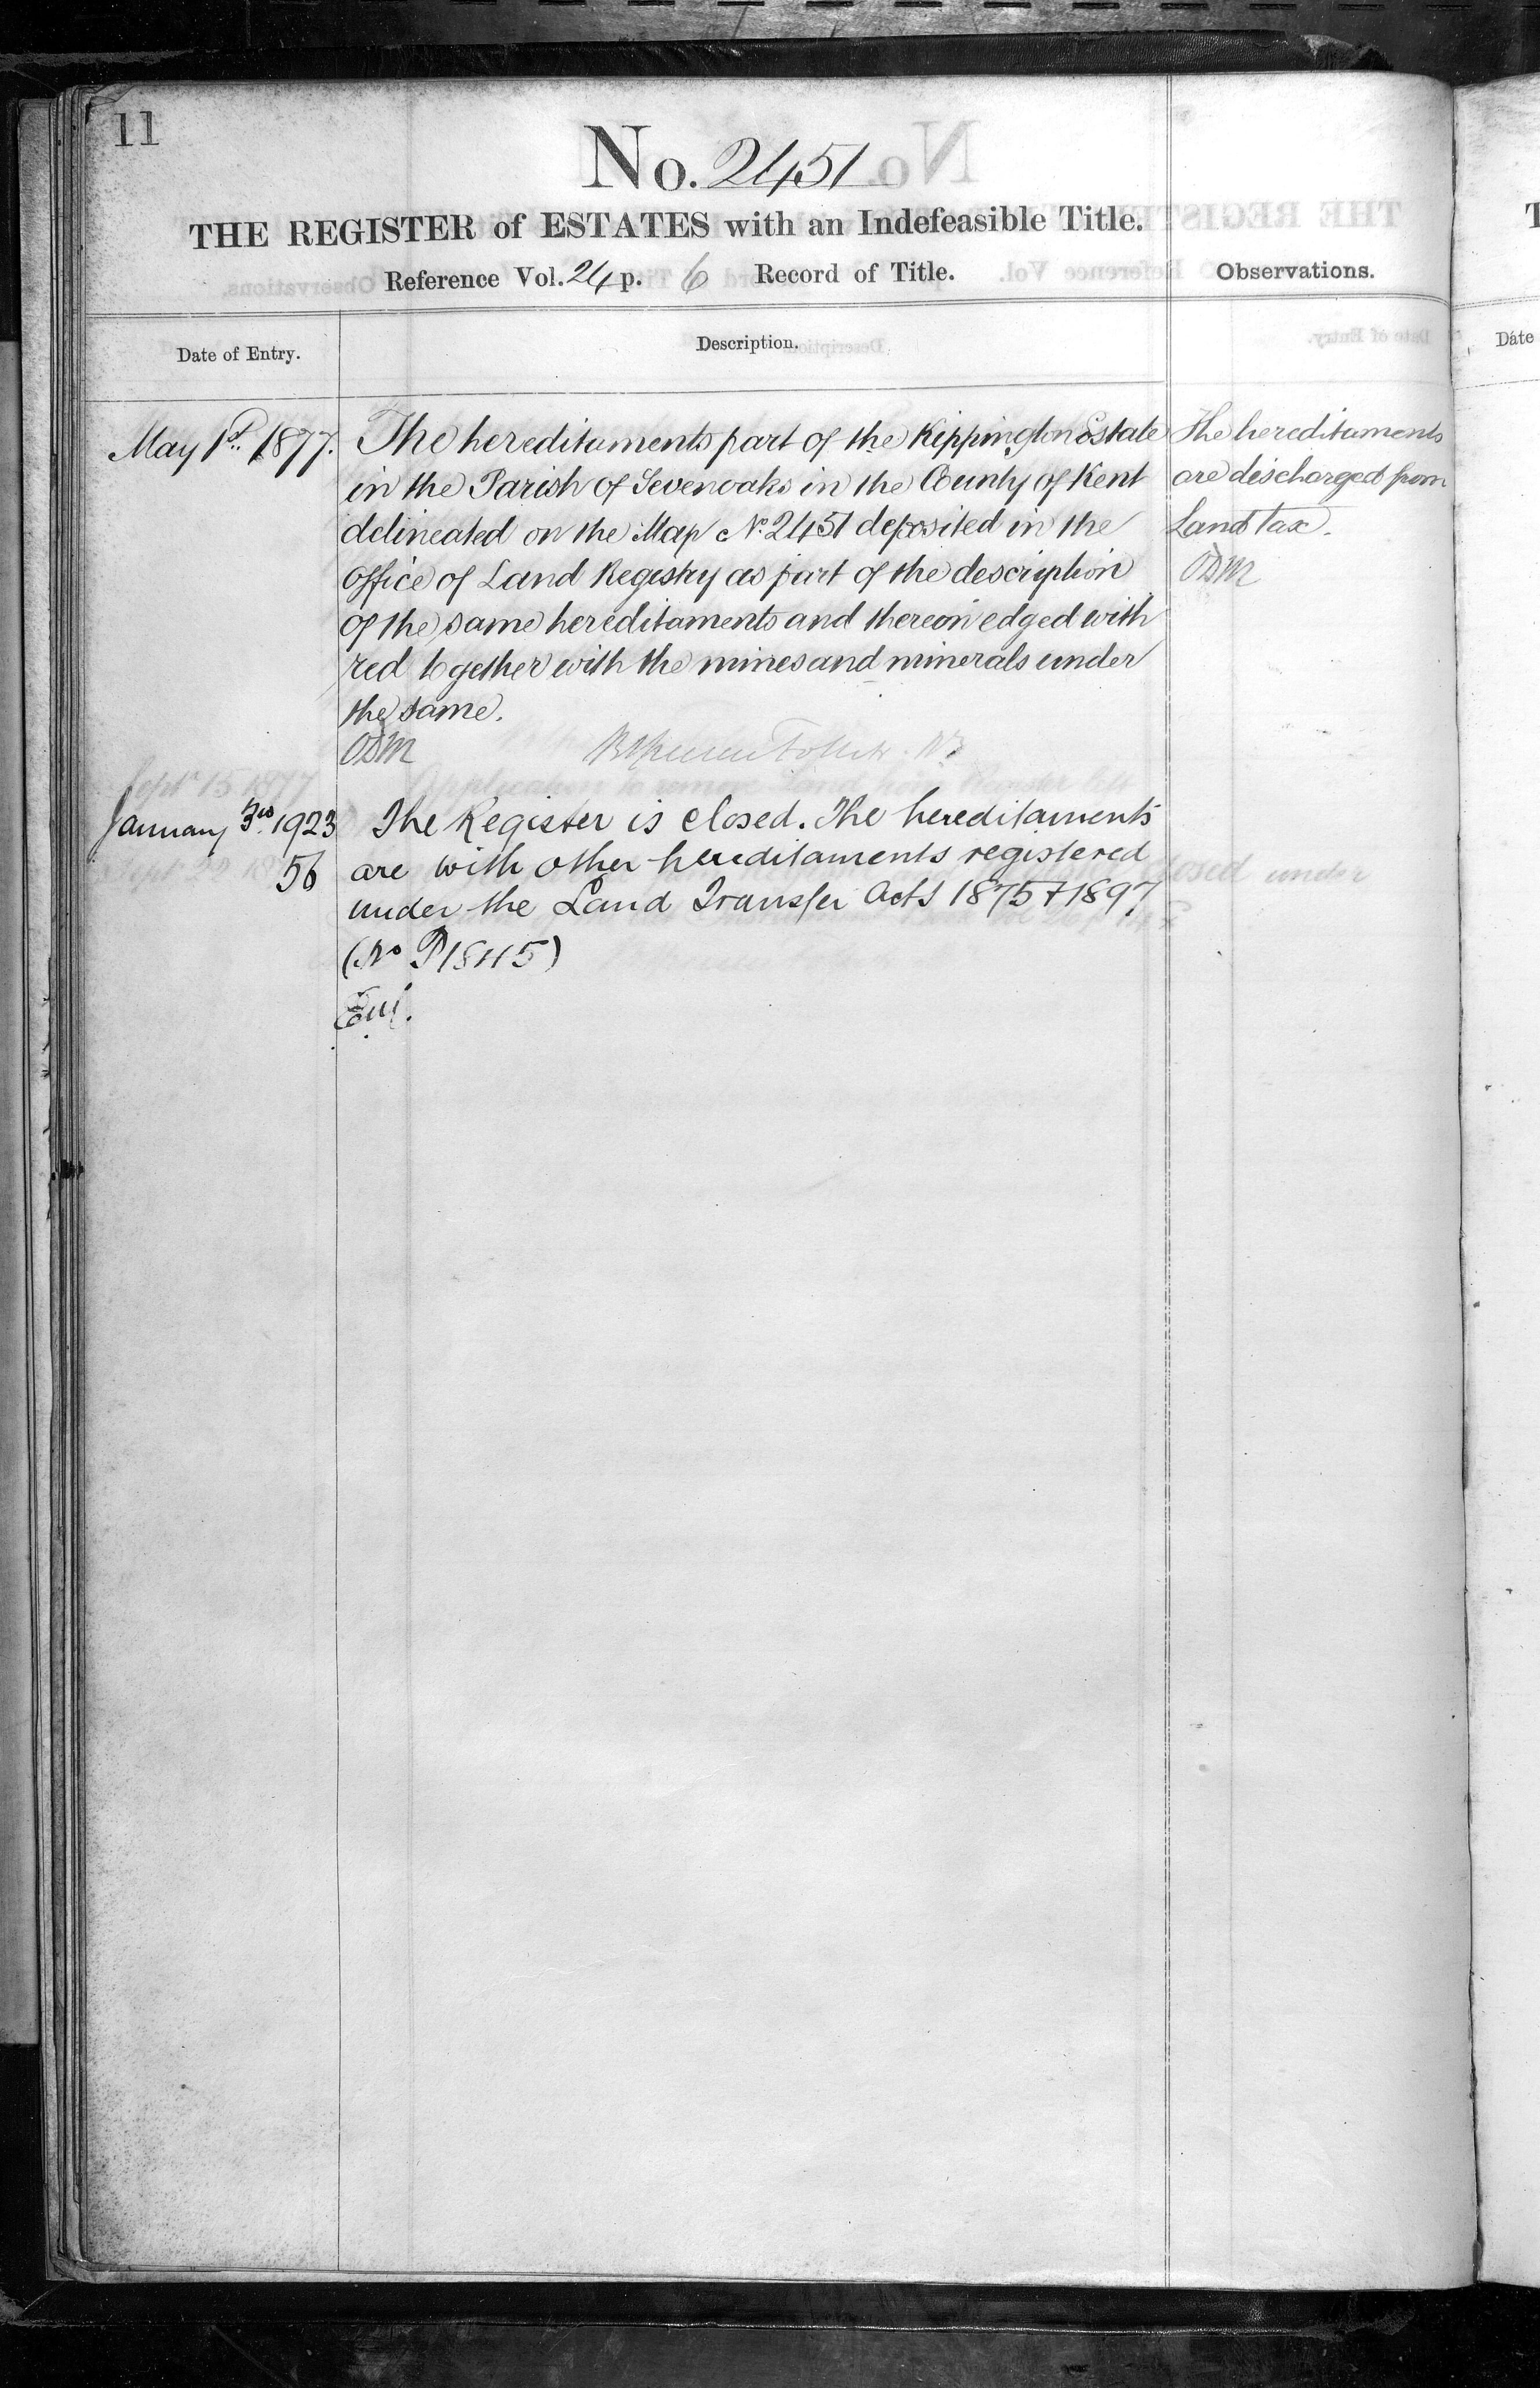 11
No. 2451
THE REGISTER of ESTATES with an Indefeasible Title.
Reference Vol. 24 p. 6 Record of Title.
Observations.
Date of Entry.
Description.
May 1st. 1877.
The hereditaments part of the Kippington Estate
in the Parish of Sevenoaks in the County of Kent
delineated on the Map No. 2451 deposited in the
Office of Land Registry as part of the description
of the same hereditaments and thereon edged with
red together with the mines and minerals under
the same.
ODM
The hereditaments
are discharged from
Land tax.
ODM
Sept 15 1877
Application to remove Land from Register left
January 3rd. 1923
56
The Register is closed. The hereditaments
are with other hereditaments registered
under the Land Transfer Acts 1875 & 1897
(No P1845)
closed under
Date